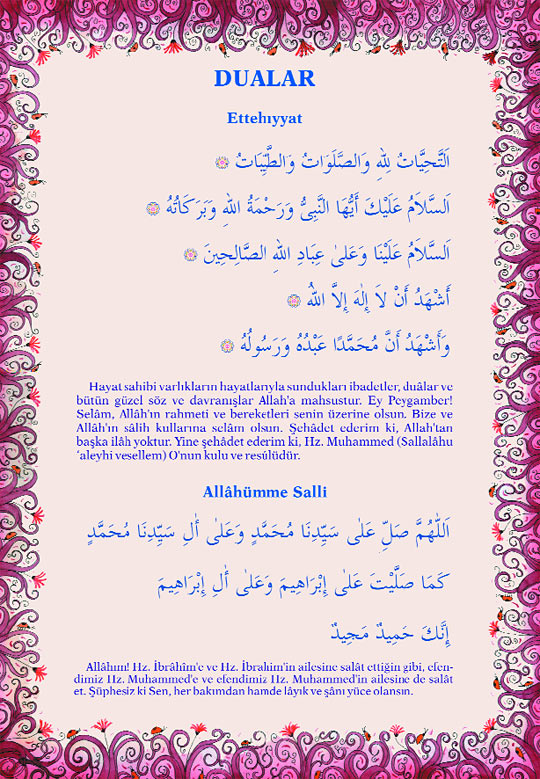 DUALAR
Ettehıyyat
اَلتَّحِيَّاتُ لِلّٰهِ وَالصَّلَوَاتُ وَالطَّيِّبَاتُ
اَلسَّلاَمُ عَلَيْكَ أَيُّهَا النَّبِىُّ وَرَحْمَةُ اللهِ وَبَرَكَاتُهُ
اَلسَّلاَمُ عَلَيْنَا وَعَلىٰ عِبَادِ اللهِ الصَّالِحِينَ
أَشْهَدُ أَنْ لاَ إِلٰهَ إِلاَّ اللهُ
وَأَشْهَدُ أَنَّ مُحَمَّدًا عَبْدُهُ وَرَسُولُهُ
Hayat sahibi varlıkların hayatlarıyla sundukları ibadetler, duâlar ve
bütün güzel söz ve davranışlar Allah'a mahsustur. Ey Peygamber!
Selâm, Allâh'ın rahmeti ve bereketleri senin üzerine olsun. Bize ve
Allâh'ın sâlih kullarına selâm olsun. Şehâdet ederim ki, Allah'tan
başka ilâh yoktur. Yine şehâdet ederim ki, Hz. Muhammed (Sallalâhu
‘aleyhi vesellem) O'nun kulu ve resûlüdür.
Allâhümme Salli
اَللّٰهُمَّ صَلِّ عَلىٰ سَيِّدِنَا مُحَمَّدٍ وَعَلىٰ أٰلِ سَيِّدِنَا مُحَمَّدٍ
كَمَا صَلَّيْتَ عَلىٰ إِبْرَاهِيمَ وَعَلىٰ أٰلِ إِبْرَاهِيمَ
إِنَّكَ حَمِيدٌ مَجِيدٌ
Allâhım! Hz. İbrâhîm'e ve Hz. İbrahim'in ailesine salât ettiğin gibi, efen-
dimiz Hz. Muhammed'e ve efendimiz Hz. Muhammed'in ailesine de salât
et. Şüphesiz ki Sen, her bakımdan hamde lâyık ve şânı yüce olansın.